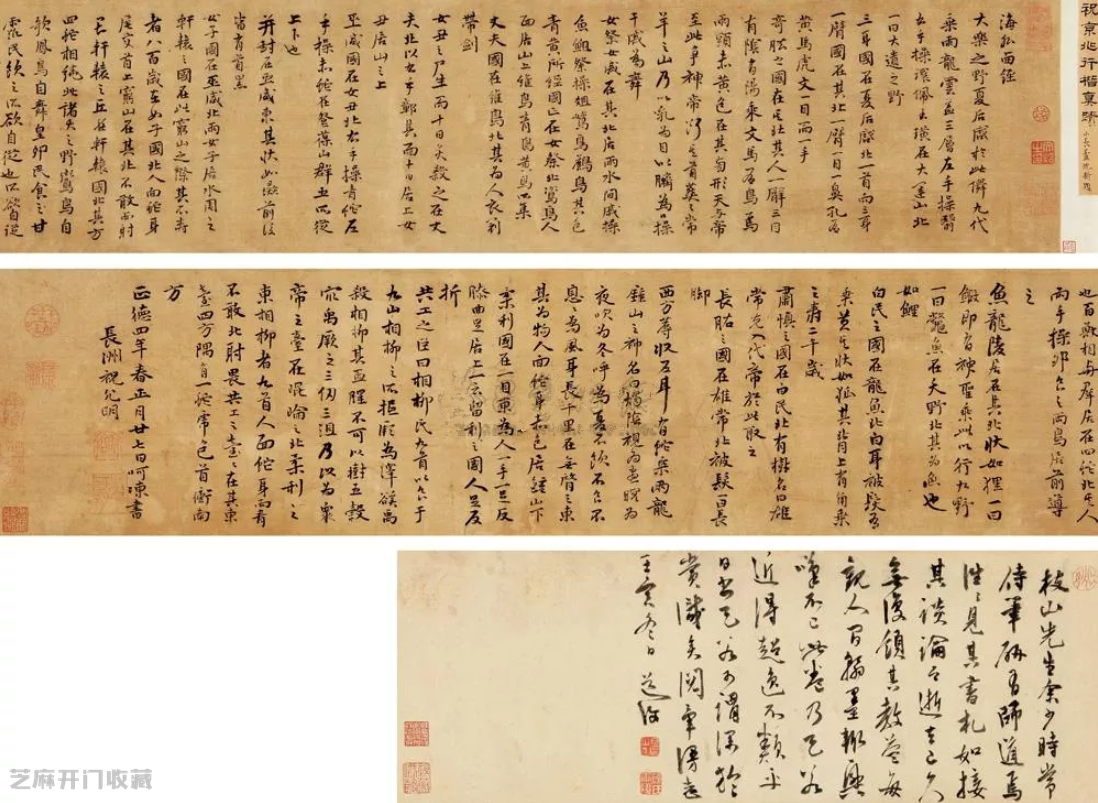 祝京兆行楷真蹟
海外西經
大樂之野夏后啟於此儛九代
乘兩龍雲蓋三層左手操翳
右手操環佩玉璜在大運山北
一曰大遺之野
三身國在夏后啟北一首而三身
一臂國在其北一臂一目一鼻孔有
黃馬虎文一目而一手
奇肱之國在其北其人一臂三目
有陰有陽乘文馬有鳥焉
兩頭赤黃色在其旁形天與帝
至此爭神帝斷其首葬之常
羊之山乃以乳為目以臍為口操
干戚為舞
女祭女戚在其北居兩水間戚操
魚䱉祭操俎鶿鳥鶬鳥其色
青黃所經國亡在女祭北鶿鳥人
面居山上一曰維鳥青鳥黃鳥所集
丈夫國在維鳥北其為人衣冠
帶劍
女丑之尸生而十日炙殺之在丈
夫北以右手鄣其面十日居上女
丑居山之上
巫咸國在女丑北右手操青蛇左
手操赤蛇在登葆山群巫所從
上下也
并封在巫咸東其狀如彘前後
皆有首黑
女子國在巫咸北兩女子居水周之
軒轅之國在此窮山之際其不壽
者八百歲在女子國北人面蛇身
尾交首上窮山在其北不敢西射
畏軒轅之丘在軒轅國北其方
四蛇相繞此諸夭之野鸞鳥自
歌鳳鳥自舞皇卵民食之甘
露民飲之所欲自從也所欲自從
也百獸相與群居在四蛇北其人
兩手操卵食之兩鳥居前導
之
魚龍陵居在其北狀如狸一曰
鰕即有神聖乘此以行九野
一曰鱉魚在夭野北其為魚也
如鯉
白民之國在龍魚北白身被髮有
乘黃其狀如狐其背上有角乘
之壽二千歲
肅慎之國在白民北有樹名曰雄
常先入代帝於此取之
長股之國在雄常北被髮一曰長
腳
西方蓐收左耳有蛇乘兩龍
鍾山之神名曰燭陰視為晝瞑為
夜吹為冬呼為夏不飲不食不
息息為風身長千里在無䏿之東
其為物人面蛇身赤色居鍾山下
柔利國在一目東為人一手一足反
膝曲足居上一云留利之國人足反
折
共工之臣曰相柳氏九首以食于
九山相柳之所抵厥為澤谿禹
殺相柳其血腥不可以樹五穀
種禹厥之三仞三沮乃以為眾
帝之臺在昆崙之北柔利之
東相柳者九首人面蛇身而青
不敢北射畏共工之臺臺在其東
臺四方隅有一蛇虎色首衝南
方
正德四年春正月廿七日呵凍書
長洲祝允明
枝山先生余少時常
侍筆研有師道焉
往往見其書札如接
其談論今逝去已久
無復領其教益每
觀人間翰墨輒興
嘆不已此卷乃其
近得超逸不類平
日書
賞識矣閱畢漫志
壬寅冬日
芝麻开门收藏